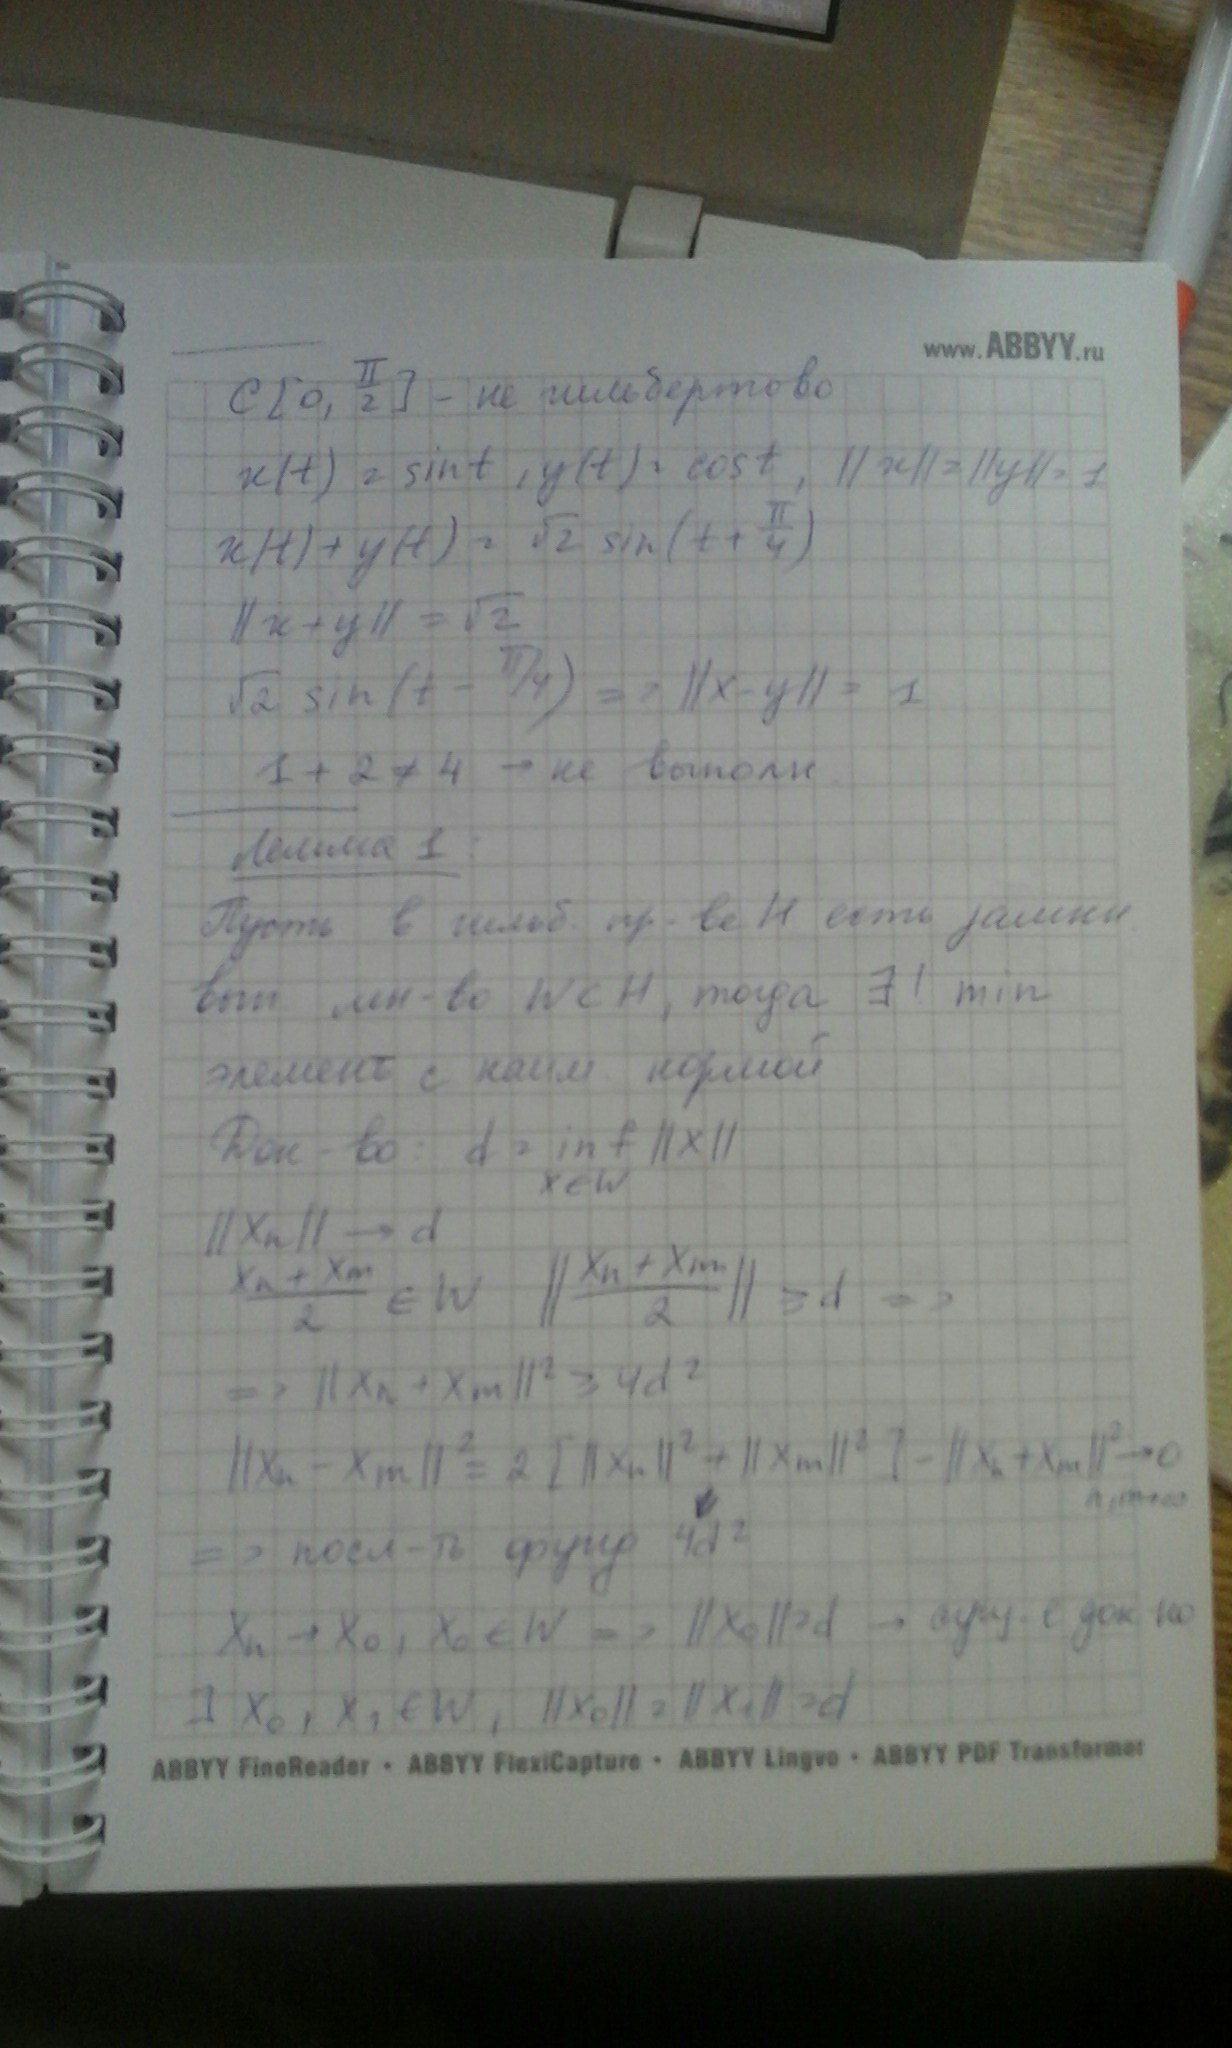 www.ABBYY.ru
C[0, π/2] - не гильбертово
x(t) = sin t, y(t) = cos t, ||x|| = ||y|| = 1
x(t) + y(t) = √2 sin(t + π/4)
||x + y|| = √2
√2 sin(t - π/4) => ||x - y|| = 1
1 + 2 ≠ 4 → не выполн.
Лемма 1:
Пусть в гильб. пр-ве H есть замкн.
вып мн-во W ⊂ H, тогда ∃! min
элемент с наим. нормой
Док-во: d = inf ||x||
x ∈ W
||xn|| → d
(xn + xm)/2 ∈ W ||(xn + xm)/2|| ≥ d =>
=> ||xn + xm||² ≥ 4d²
||xn - xm||² = 2[||xn||² + ||xm||²] - ||xn + xm||² → 0
n, m → ∞
=> посл-ть фунд 4d²
xn → x0, x0 ∈ W => ||x0|| = d → сущ-е док-но
] x0, x1 ∈ W, ||x0|| = ||x1|| = d
ABBYY FineReader • ABBYY FlexiCapture • ABBYY Lingvo • ABBYY PDF Transformer